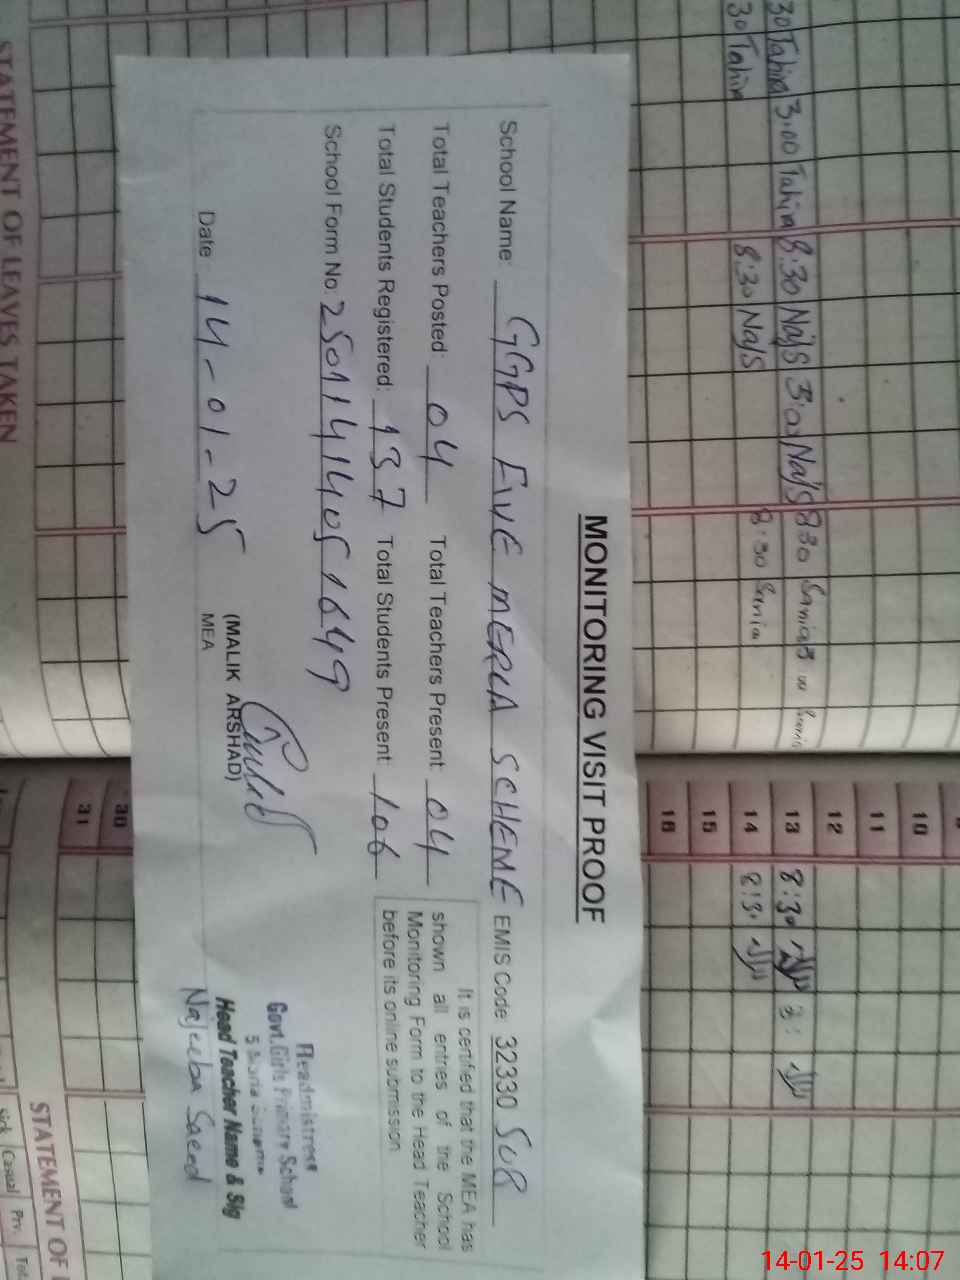 MONITORING VISIT PROOF
School Name: GGPS FIVE MERLA SCHEME EMIS Code: 32330508
Total Teachers Posted: 04 Total Teachers Present: 04
Total Students Registered: 137 Total Students Present: 106
School Form No. 25011414051649
It is certified that the MEA has
shown all entries of the School
Monitoring Form to the Head Teacher
before its online submission
Date: 14-01-25
(MALIK ARSHAD)
MEA
Headmistress
Govt. Girls Primary School
5 Marla Scheme
Head Teacher Name & Sig
Najeeba Saeed
30 Tahira 3:00 Tahira 8:30 NajS 3:00 NajS 8:30 Samia
30 Tahira 8:30 NajS 8:30 Samia
10
11
12
13 8:30
14 8:30
15
16
30
31
STATEMENT OF LEAVES TAKEN
STATEMENT OF
Sick Casual Prv.
14-01-25 14:07